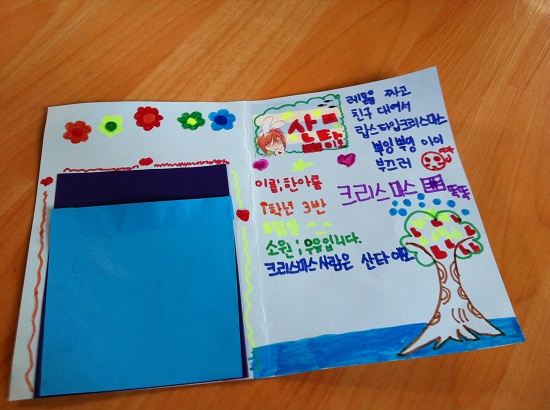 산타
레몬 짜고
친구 대여서
립스타임크리스마스
뿌잉뿌잉 아이
부끄러
이름,한아름
1학년 3반
크리스마스 똑똑
소원 : 우유입니다.
크리스마스사람은 산타예요